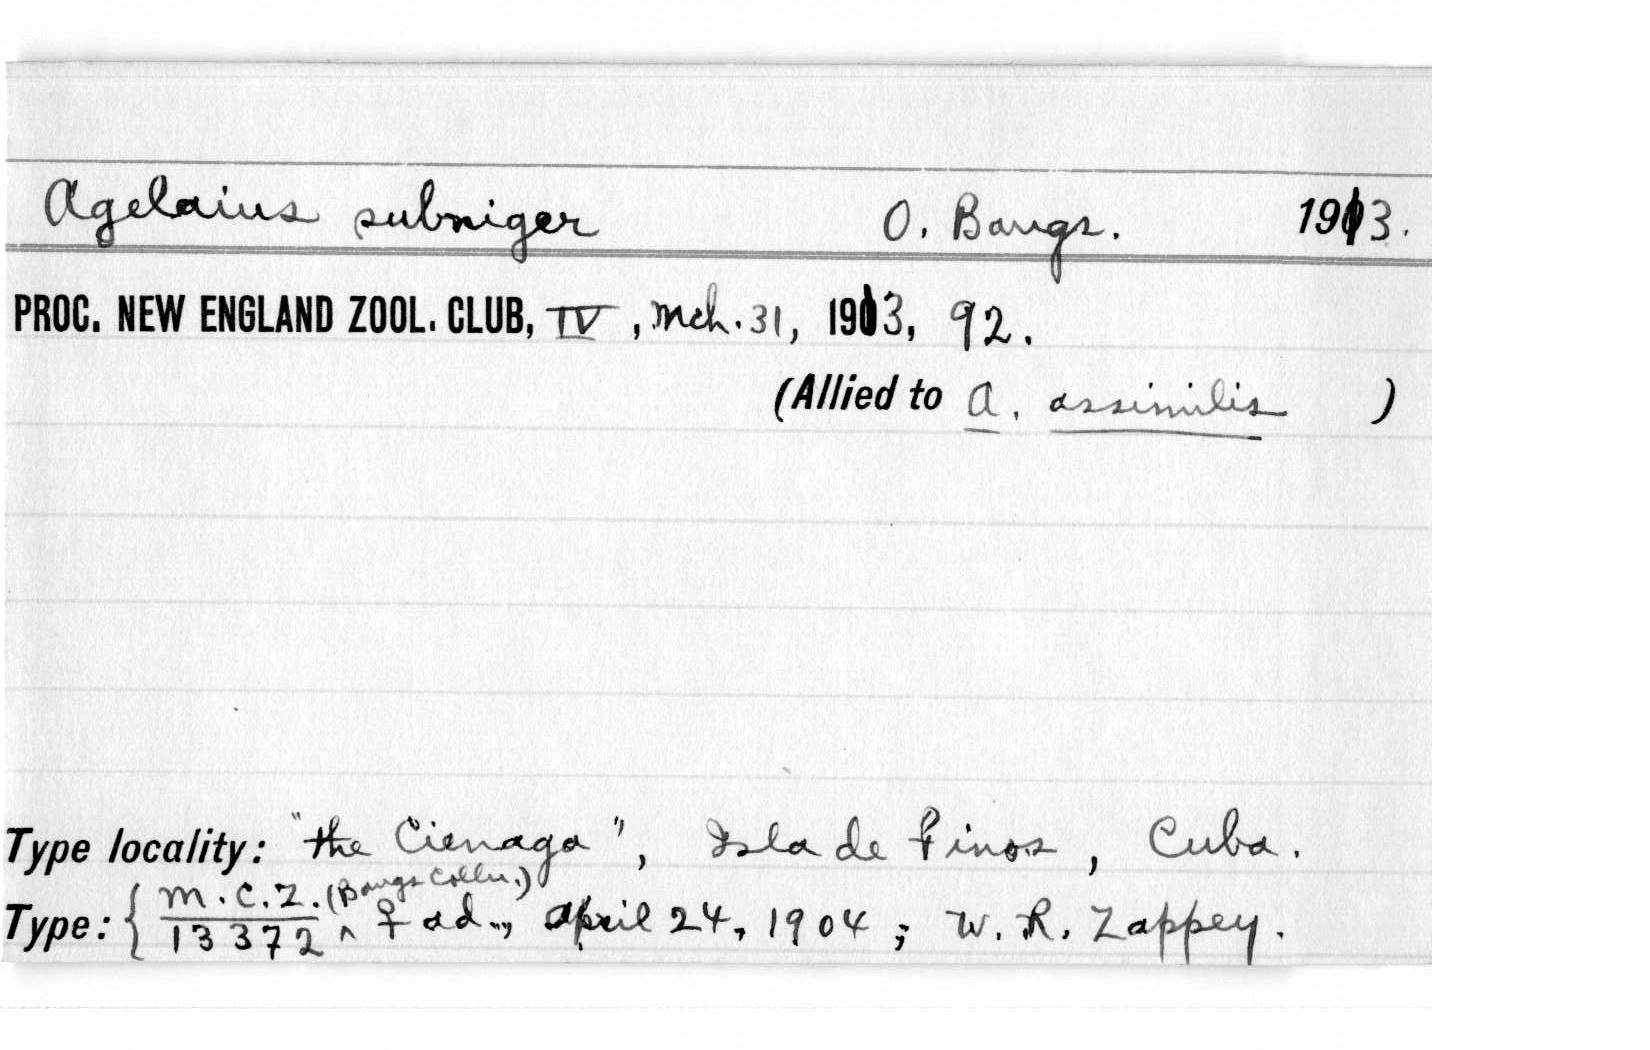 Agelaius subniger O. Bangs. 1913.
PROC. NEW ENGLAND ZOOL. CLUB, IV, Mch. 31, 1913, 92.
(Allied to A. assimilis )
Type locality: "the Cienaga", Isla de Pinos, Cuba.
Type: { M.C.Z. (Bangs Colln.)
13372 ^ ♀ ad., April 24, 1904; W. R. Zappey.